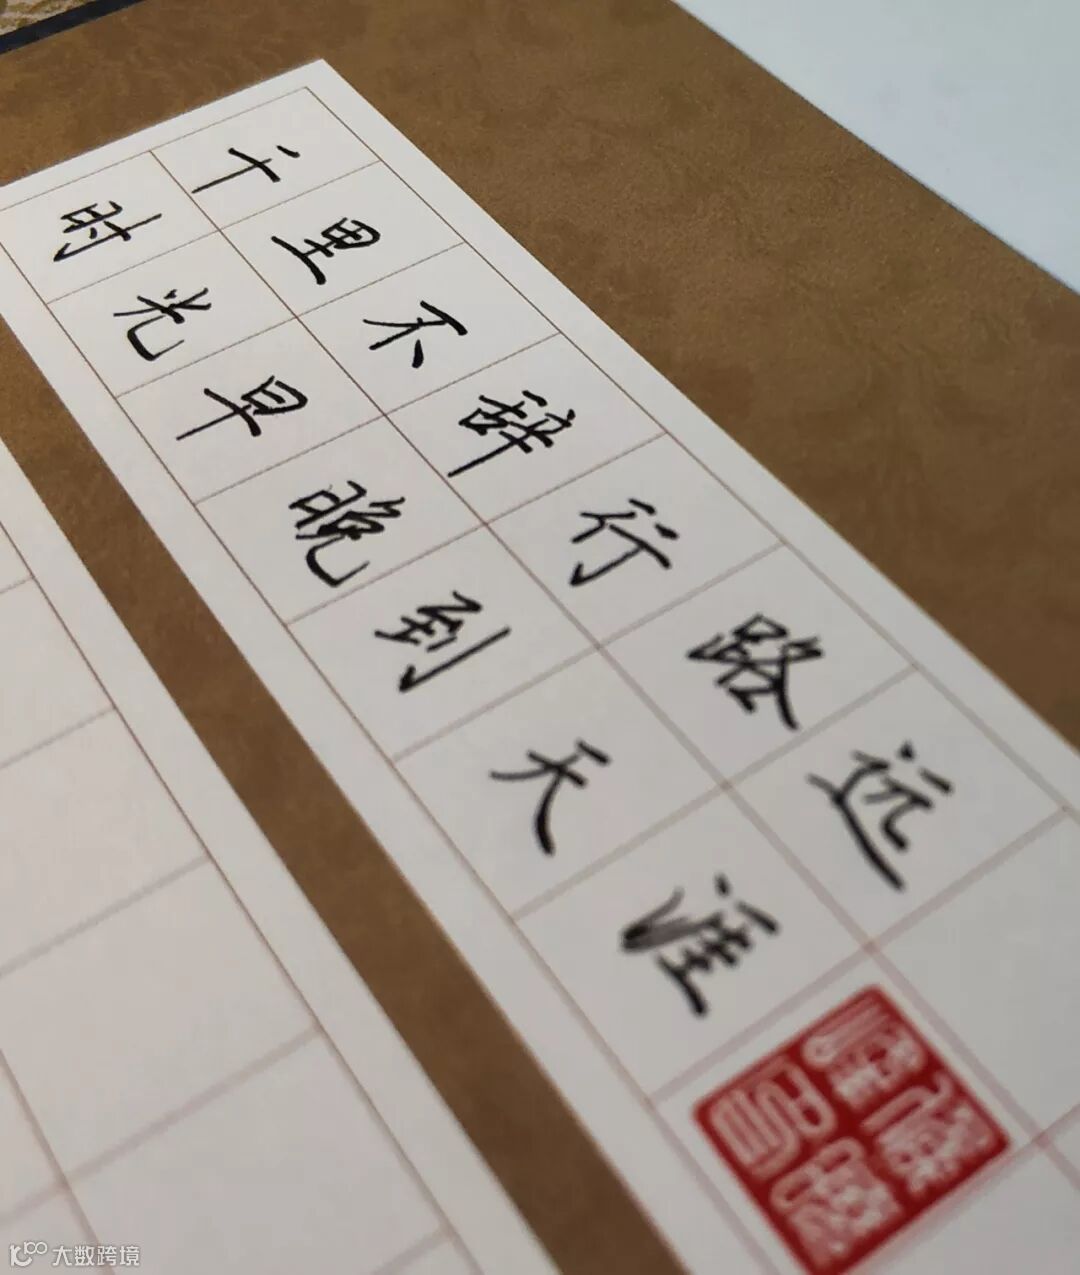 千里不辞行路远
时光早晚到天涯
大数跨境